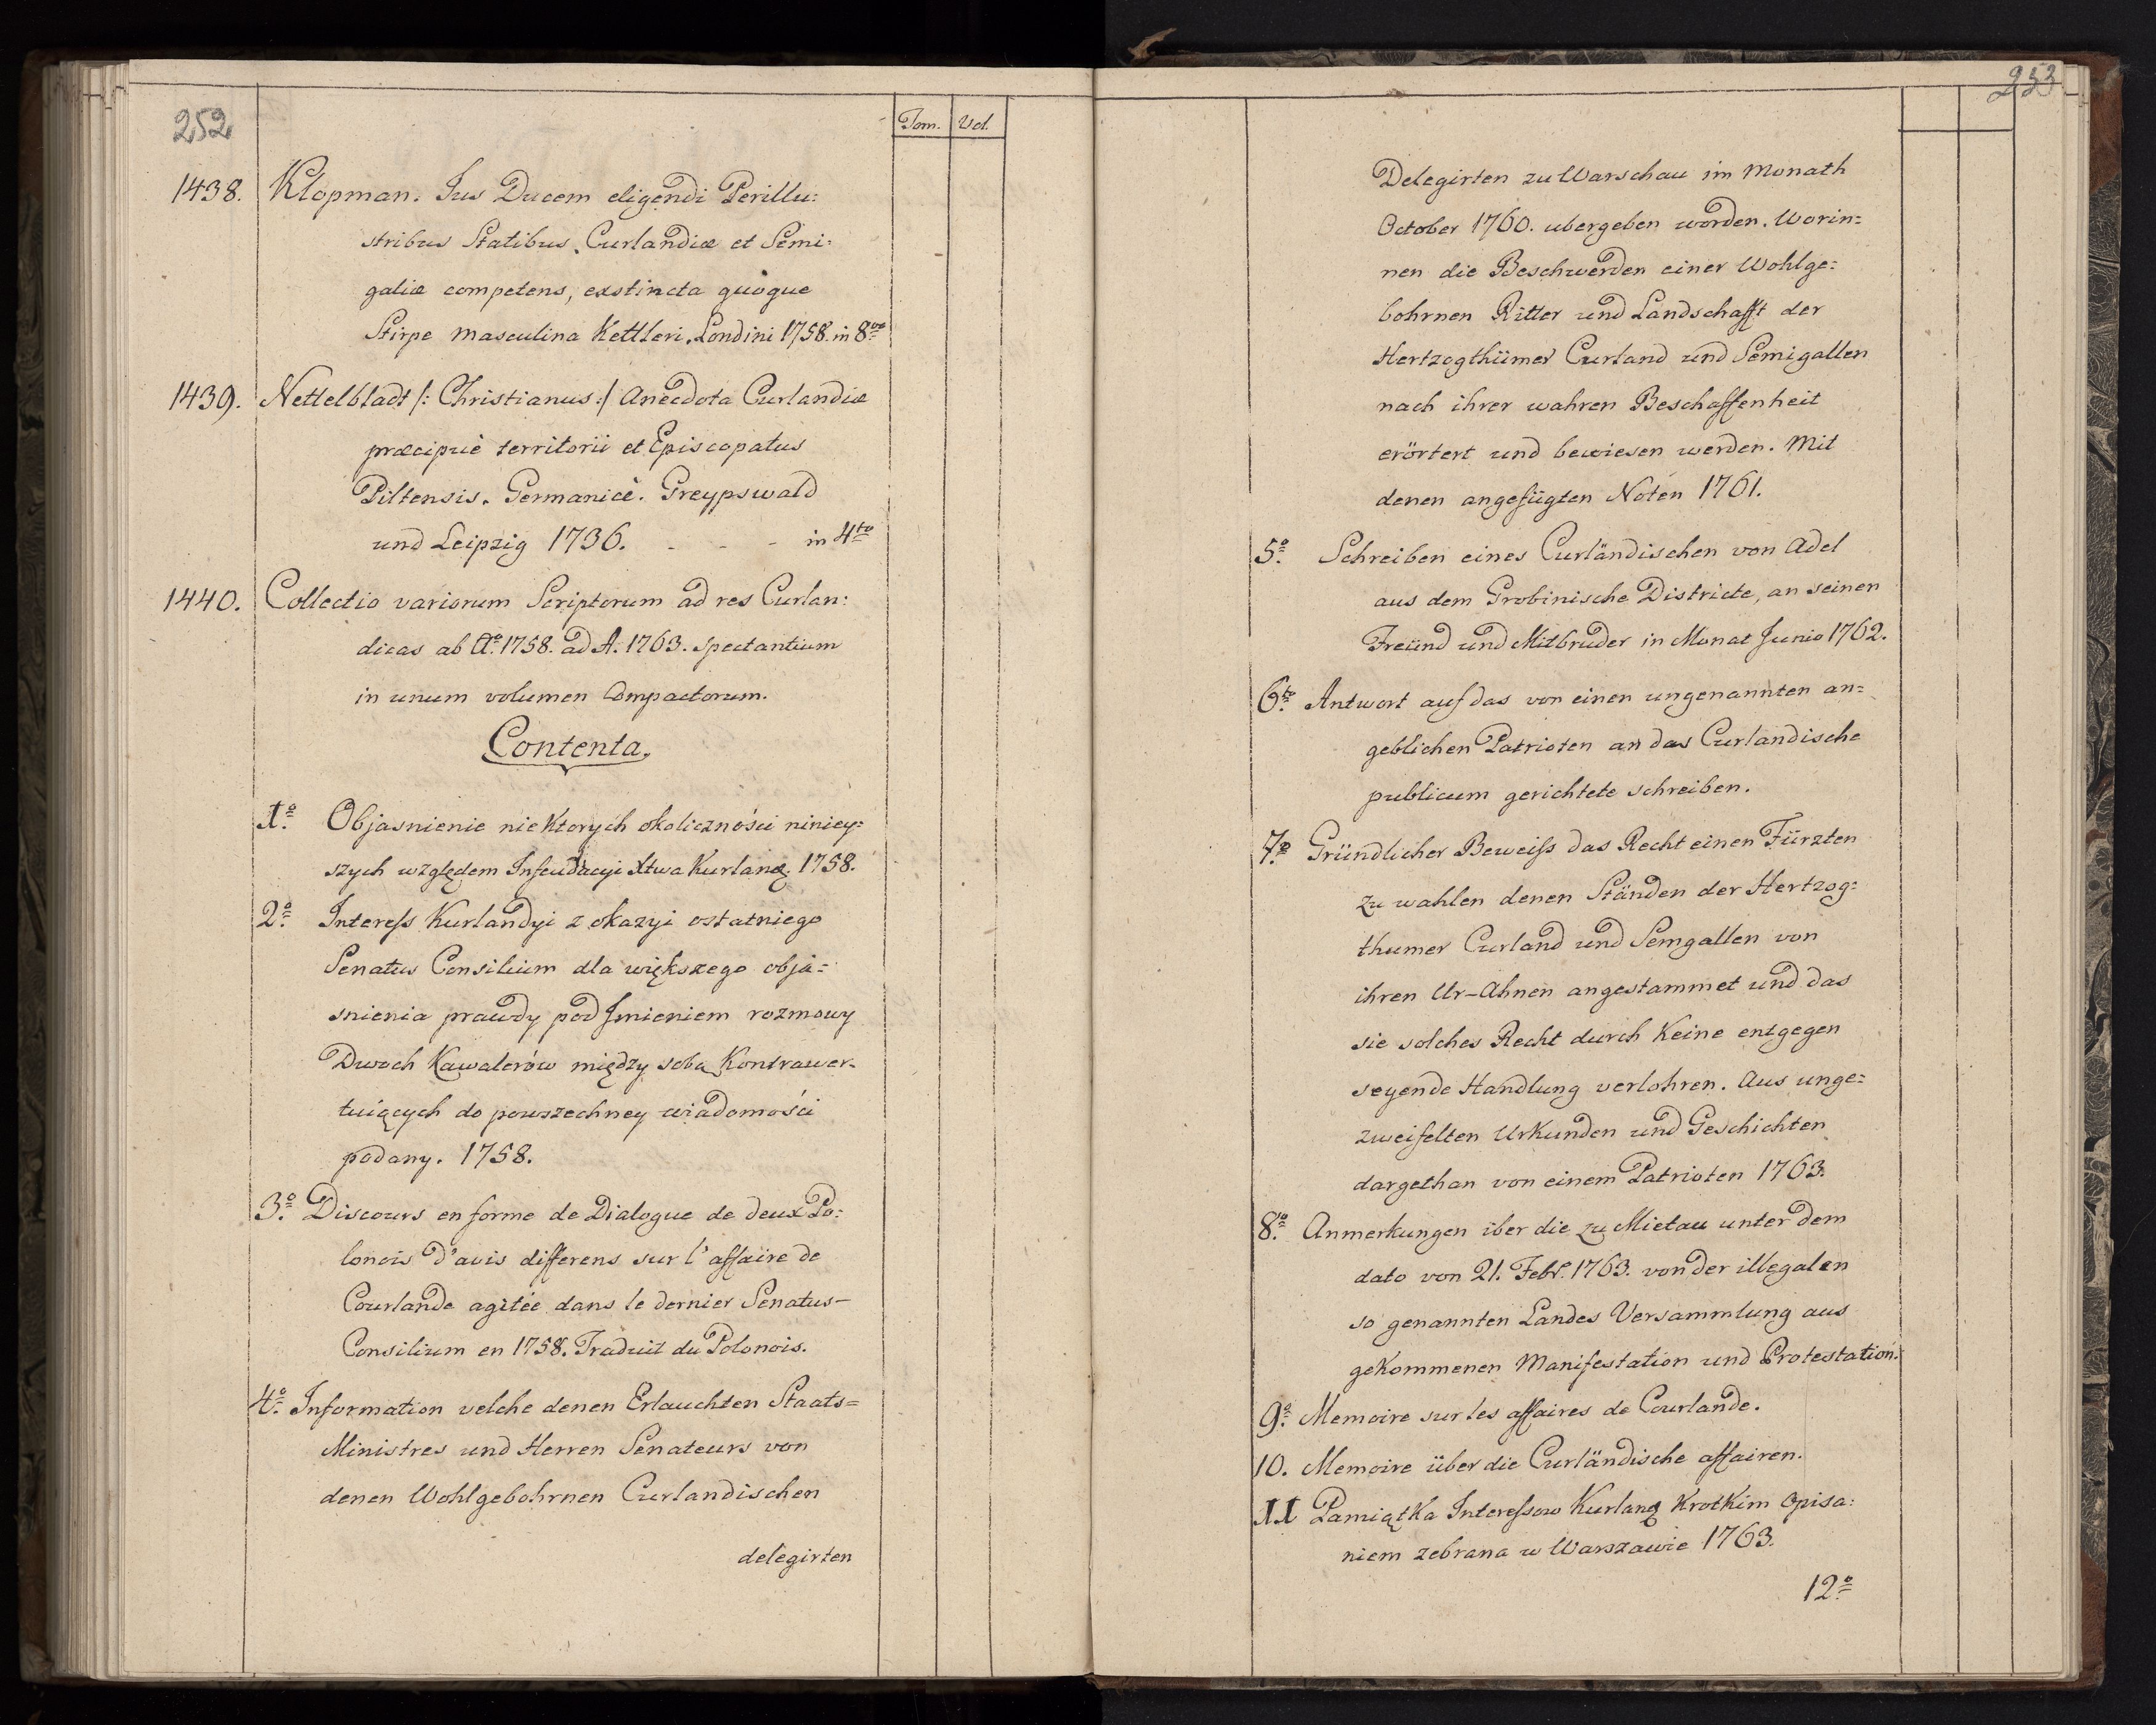 252
Tom. Vol.
1438. Klopman. Jus Ducem eligendi Perillu:
stribus Statibus, Curlandiæ et Semi:
galiæ competens, exstincta quoque
Stirpe masculina Kettleri. Londini 1758. in 8vo
1439. Nettelbladt /: Christianus :/ Anecdota Curlandiæ
præcipuè territorii et Episcopatus
Piltensis. Germanicè. Greypswald
und Leipzig 1736. - - - in 4to
1440. Collectio variorum Scriptorum ad res Curlan:
dicas ab Ao. 1758. ad A. 1763. spectantium
in unum volumen Compactorum.
Contenta.
1o. Objasnienie niektorych okoliczności niniey:
szych względem Infeudacyi Xtwa Kurlang. 1758.
2o. Interess Kurlandyi z okazyi ostatniego
Senatus Consilium dla większego obja=
snienia prawdy pod Jmieniem rozmowy
Dwoch Kawalerów między sobą Kontrawer-
tuięcych do powszechney wiadomości
podany. 1758.
3o. Discours en forme de Dialogue de deux Po:
lonois d'avis differens sur l'affaire de
Courlande agitée dans le dernier Senatus-
Consilium en 1758. Traduit du Polonois.
4o. Information velche denen Erlauchten Staats=
Ministres und Herren Senateurs von
denen Wohlgebohrnen Curlandischen
delegirten
253
Delegirten zu Warschau im Monath
October 1760. ubergeben worden. Worin=
nen die Beschwerden einer Wohlge:
bohrnen Ritter und Landschafft der
Hertzogthümer Curland und Semigallen
nach ihrer wahren Beschaffenheit
erörtert und bewiesen werden. Mit
denen angefügten Noten 1761.
5o. Schreiben eines Curländischen von Adel
aus dem Grobinische Districte, an seinen
Freünd und Mitbruder in Monat Junio 1762.
6to. Antwort auf das von einen ungenannten an=
geblichen Patrioten an das Curlandische
publicum gerichtete schreiben.
7o. Gründlicher Beweiss das Recht einen Fürzten
zu wahlen denen Ständen der Hertzog=
thumer Curland und Semgallen von
ihren Ur-Ahnen angestammet und das
sie solches Recht durch Keine entgegen
seyende Handlung verlohren. Aus unge=
zweifelten Urkunden und Geschichten
dargethan von einem Patrioten 1763.
8o. Anmerkungen iber die zu Mietau unter dem
dato von 21. Febr. 1763. von der illegalen
so genannten Landes Versammlung aus
gekommenen Manifestation und Protestation.
9o. Memoire sur les affaires de Courlande.
10. Memoire über die Curländische affairen.
11 Pamiątka Interessow Kurlang Krotkim Opisa:
niem zebrana w Warszawie 1763.
12o